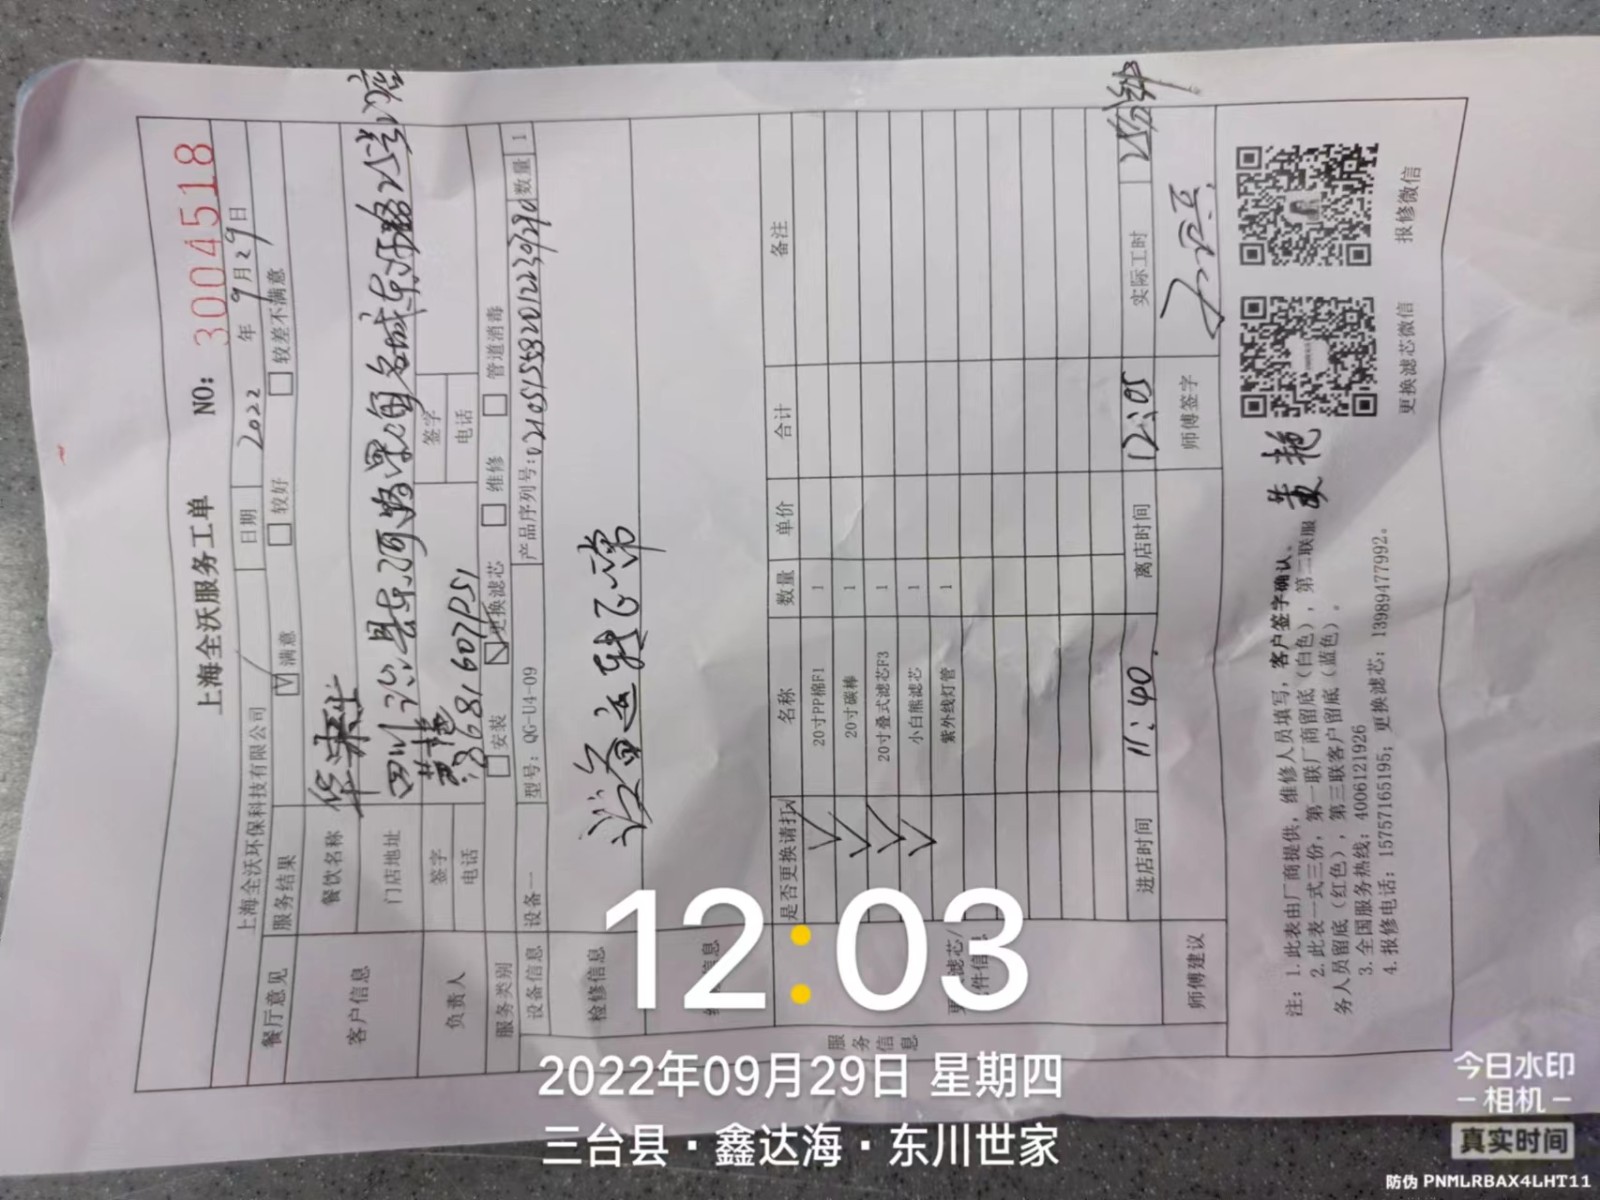 上海全沃服务工单 NO: 3004518
上海全沃环保科技有限公司 日期 2022 年 9 月 29 日
餐厅意见 服务结果 ☑ 满意 □ 较好 □ 较差不满意
客户信息 餐饮名称 华莱士
门店地址 四川 县东河路
负责人 签字 黄艳 签字
电话 电话
服务类别 □ 安装 ☑ 更换滤芯 □ 维修 □ 管道消毒
设备信息 设备一 型号: QG-U4-09 产品序列号: 数量 1
检修信息 设备运转正常
服务信息
是否更换请打√ 名称 数量 单价 合计 备注
√ 20寸PP棉F1 1
√ 20寸碳棒 1
√ 20寸叠式滤芯F3 1
√ 小白熊滤芯 1
紫外线灯管 1
进店时间 11:40 离店时间 12:05 实际工时 25分钟
师傅建议 师傅签字
注: 1.此表由厂商提供,维修人员填写,客户签字确认、 黄艳
2.此表一式三份,第一联厂商留底(白色),第二联服
务人员留底(红色),第三联客户留底(蓝色)。
3.全国服务热线: 4006121926
4.报修电话: 15757165195; 更换滤芯: 13989477992。
更换滤芯微信 报修微信
12:03
2022年09月29日 星期四
三台县·鑫达海·东川世家
今日水印
-相机-
真实时间
防伪 PNMLRBAX4LHT11